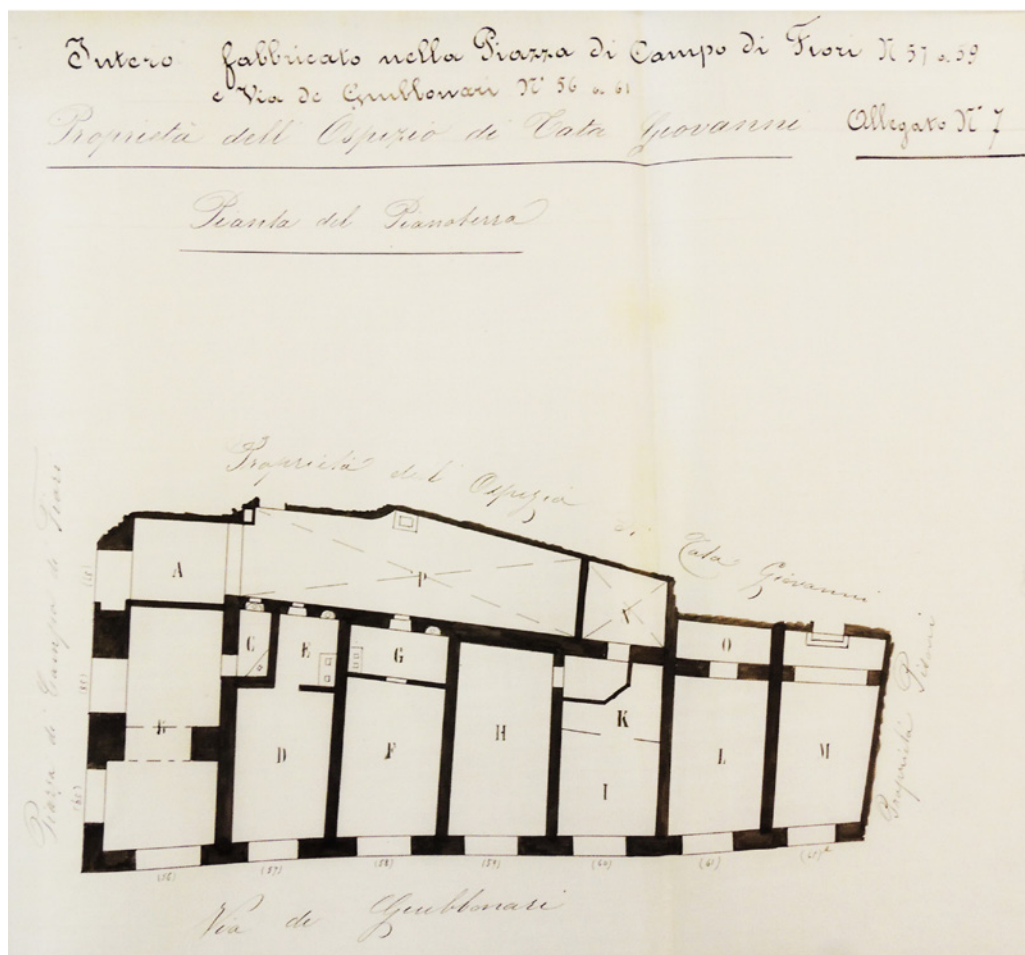 Intero fabbricato nella Piazza di Campo di Fiori N 57 a 59
e Via de Giubbonari N° 56 a 61
Proprietà dell' Ospizio di Tata Giovanni Allegato N° 7
Pianta del Pianoterra
Proprietà dell' Ospizio di Tata Giovanni
Piazza di Campo di Fiori
Proprietà
A
P
C
E
G
O
K
D
F
H
L
M
I
(56)
(57)
(58)
(59)
(60)
(61)
Via de Giubbonari